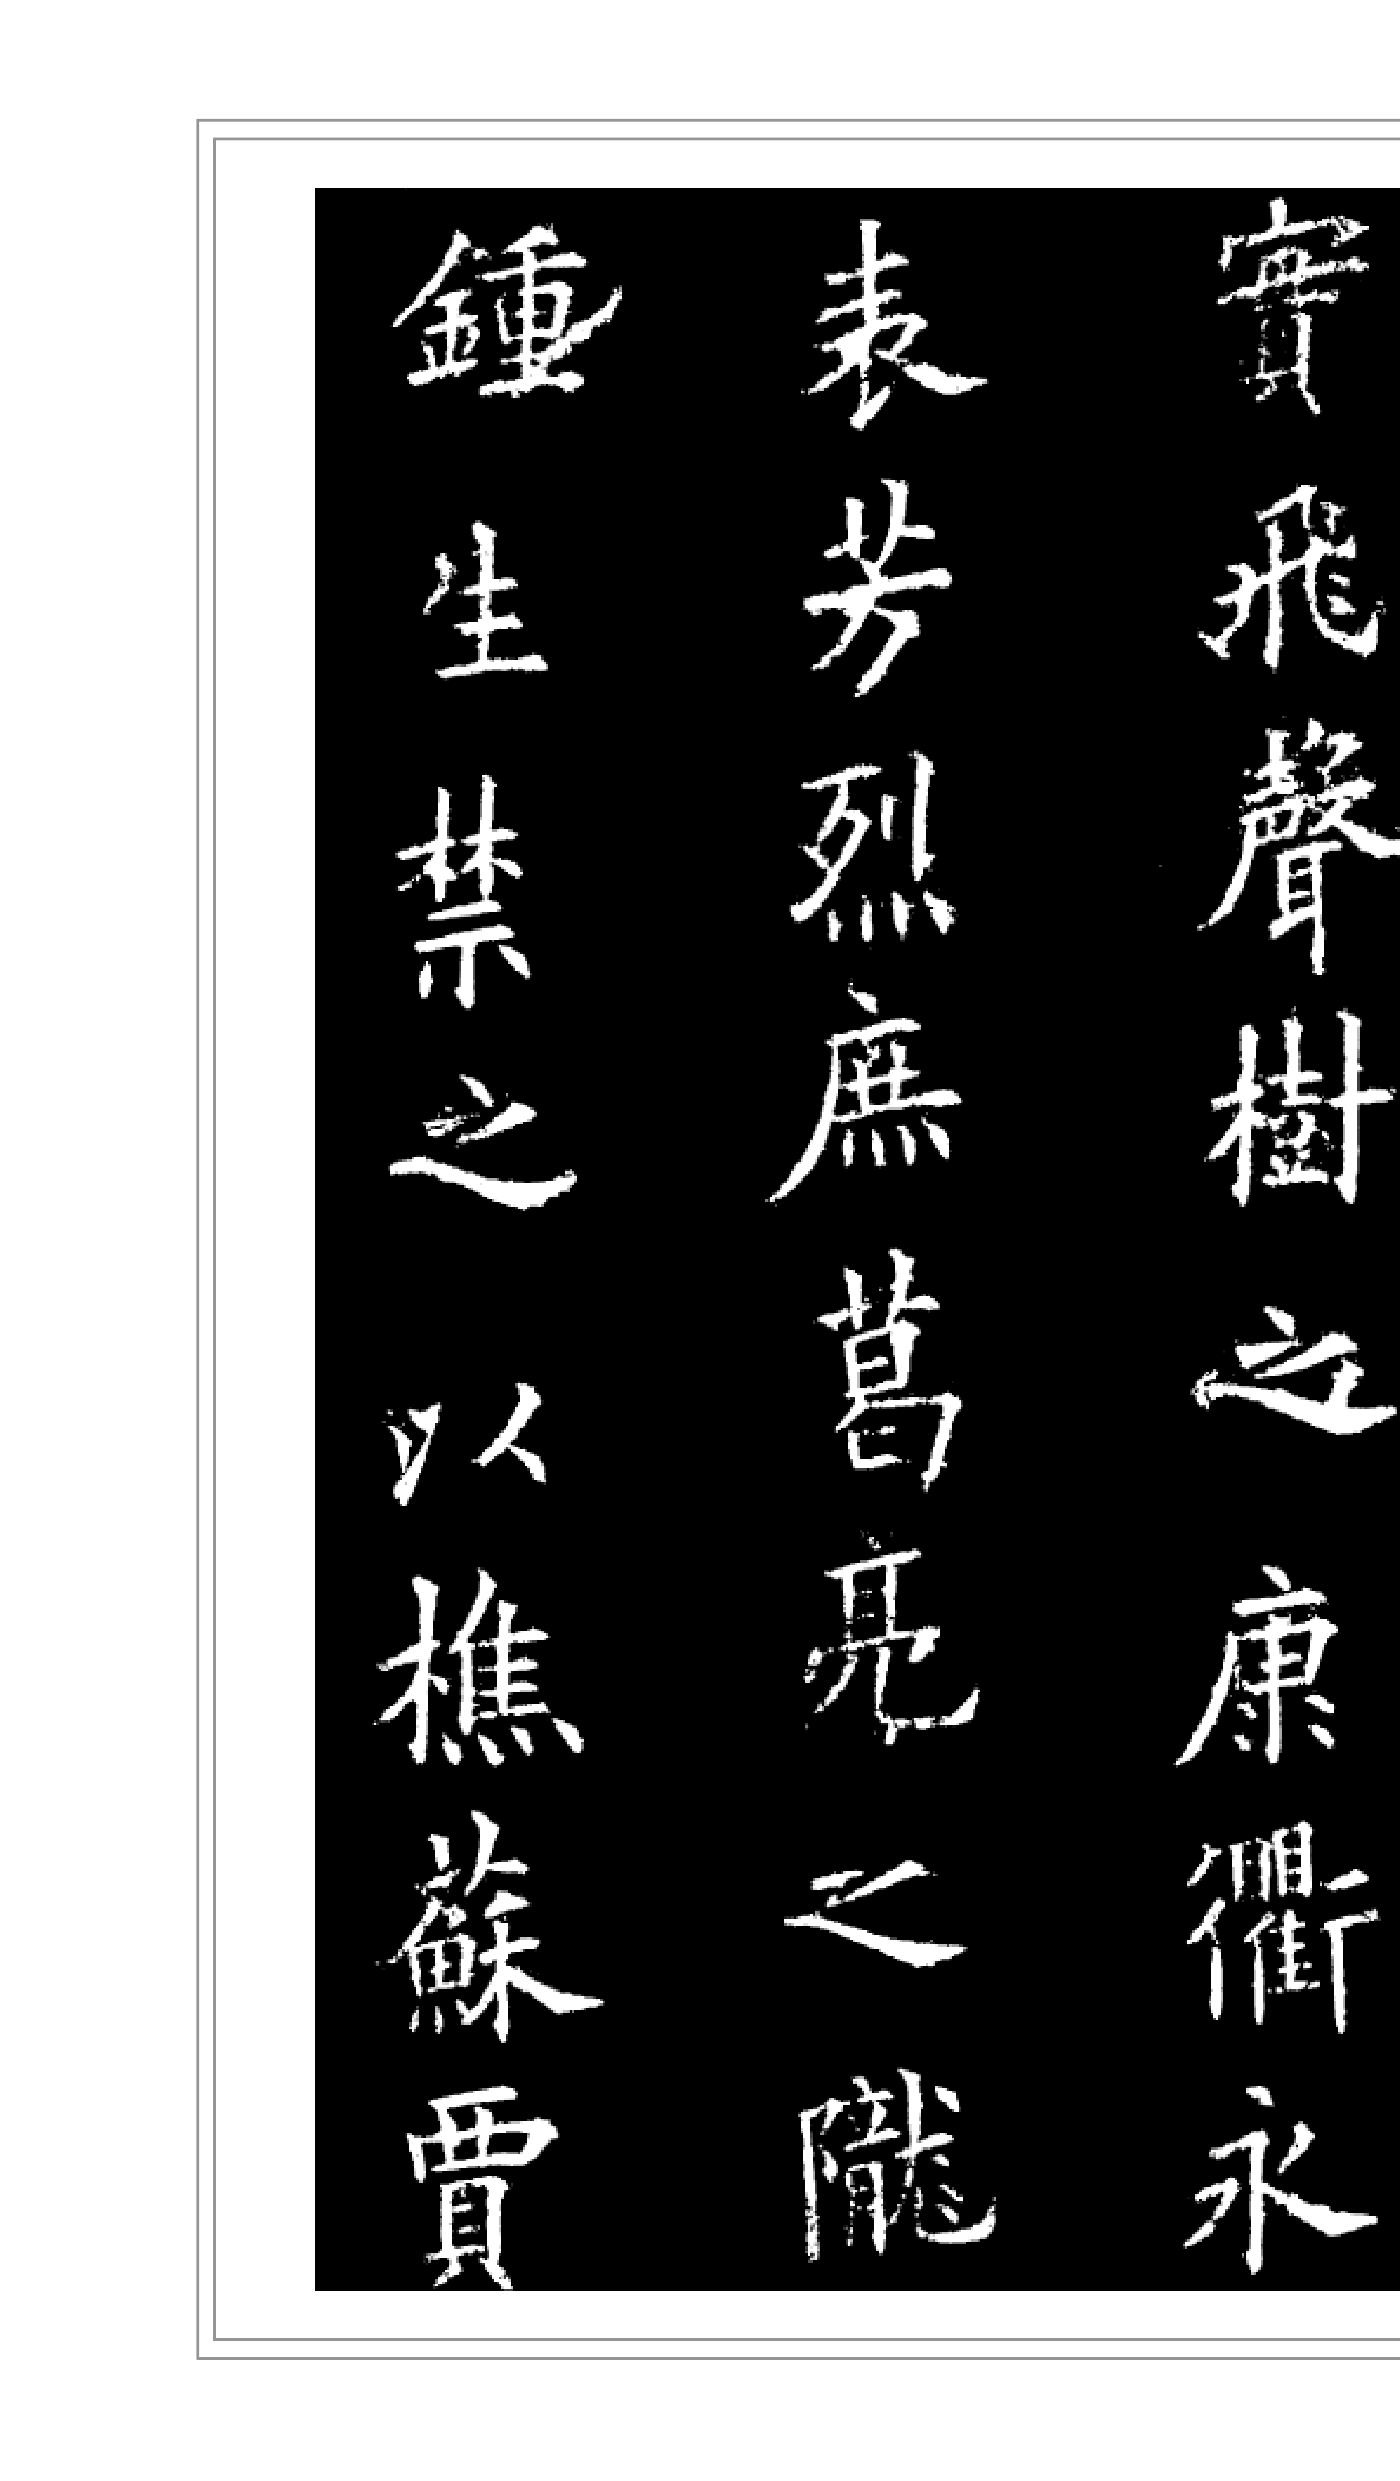 實飛聲樹之康衢永
表芳烈庶葛亮之隴
鍾生禁之以樵蘇賈